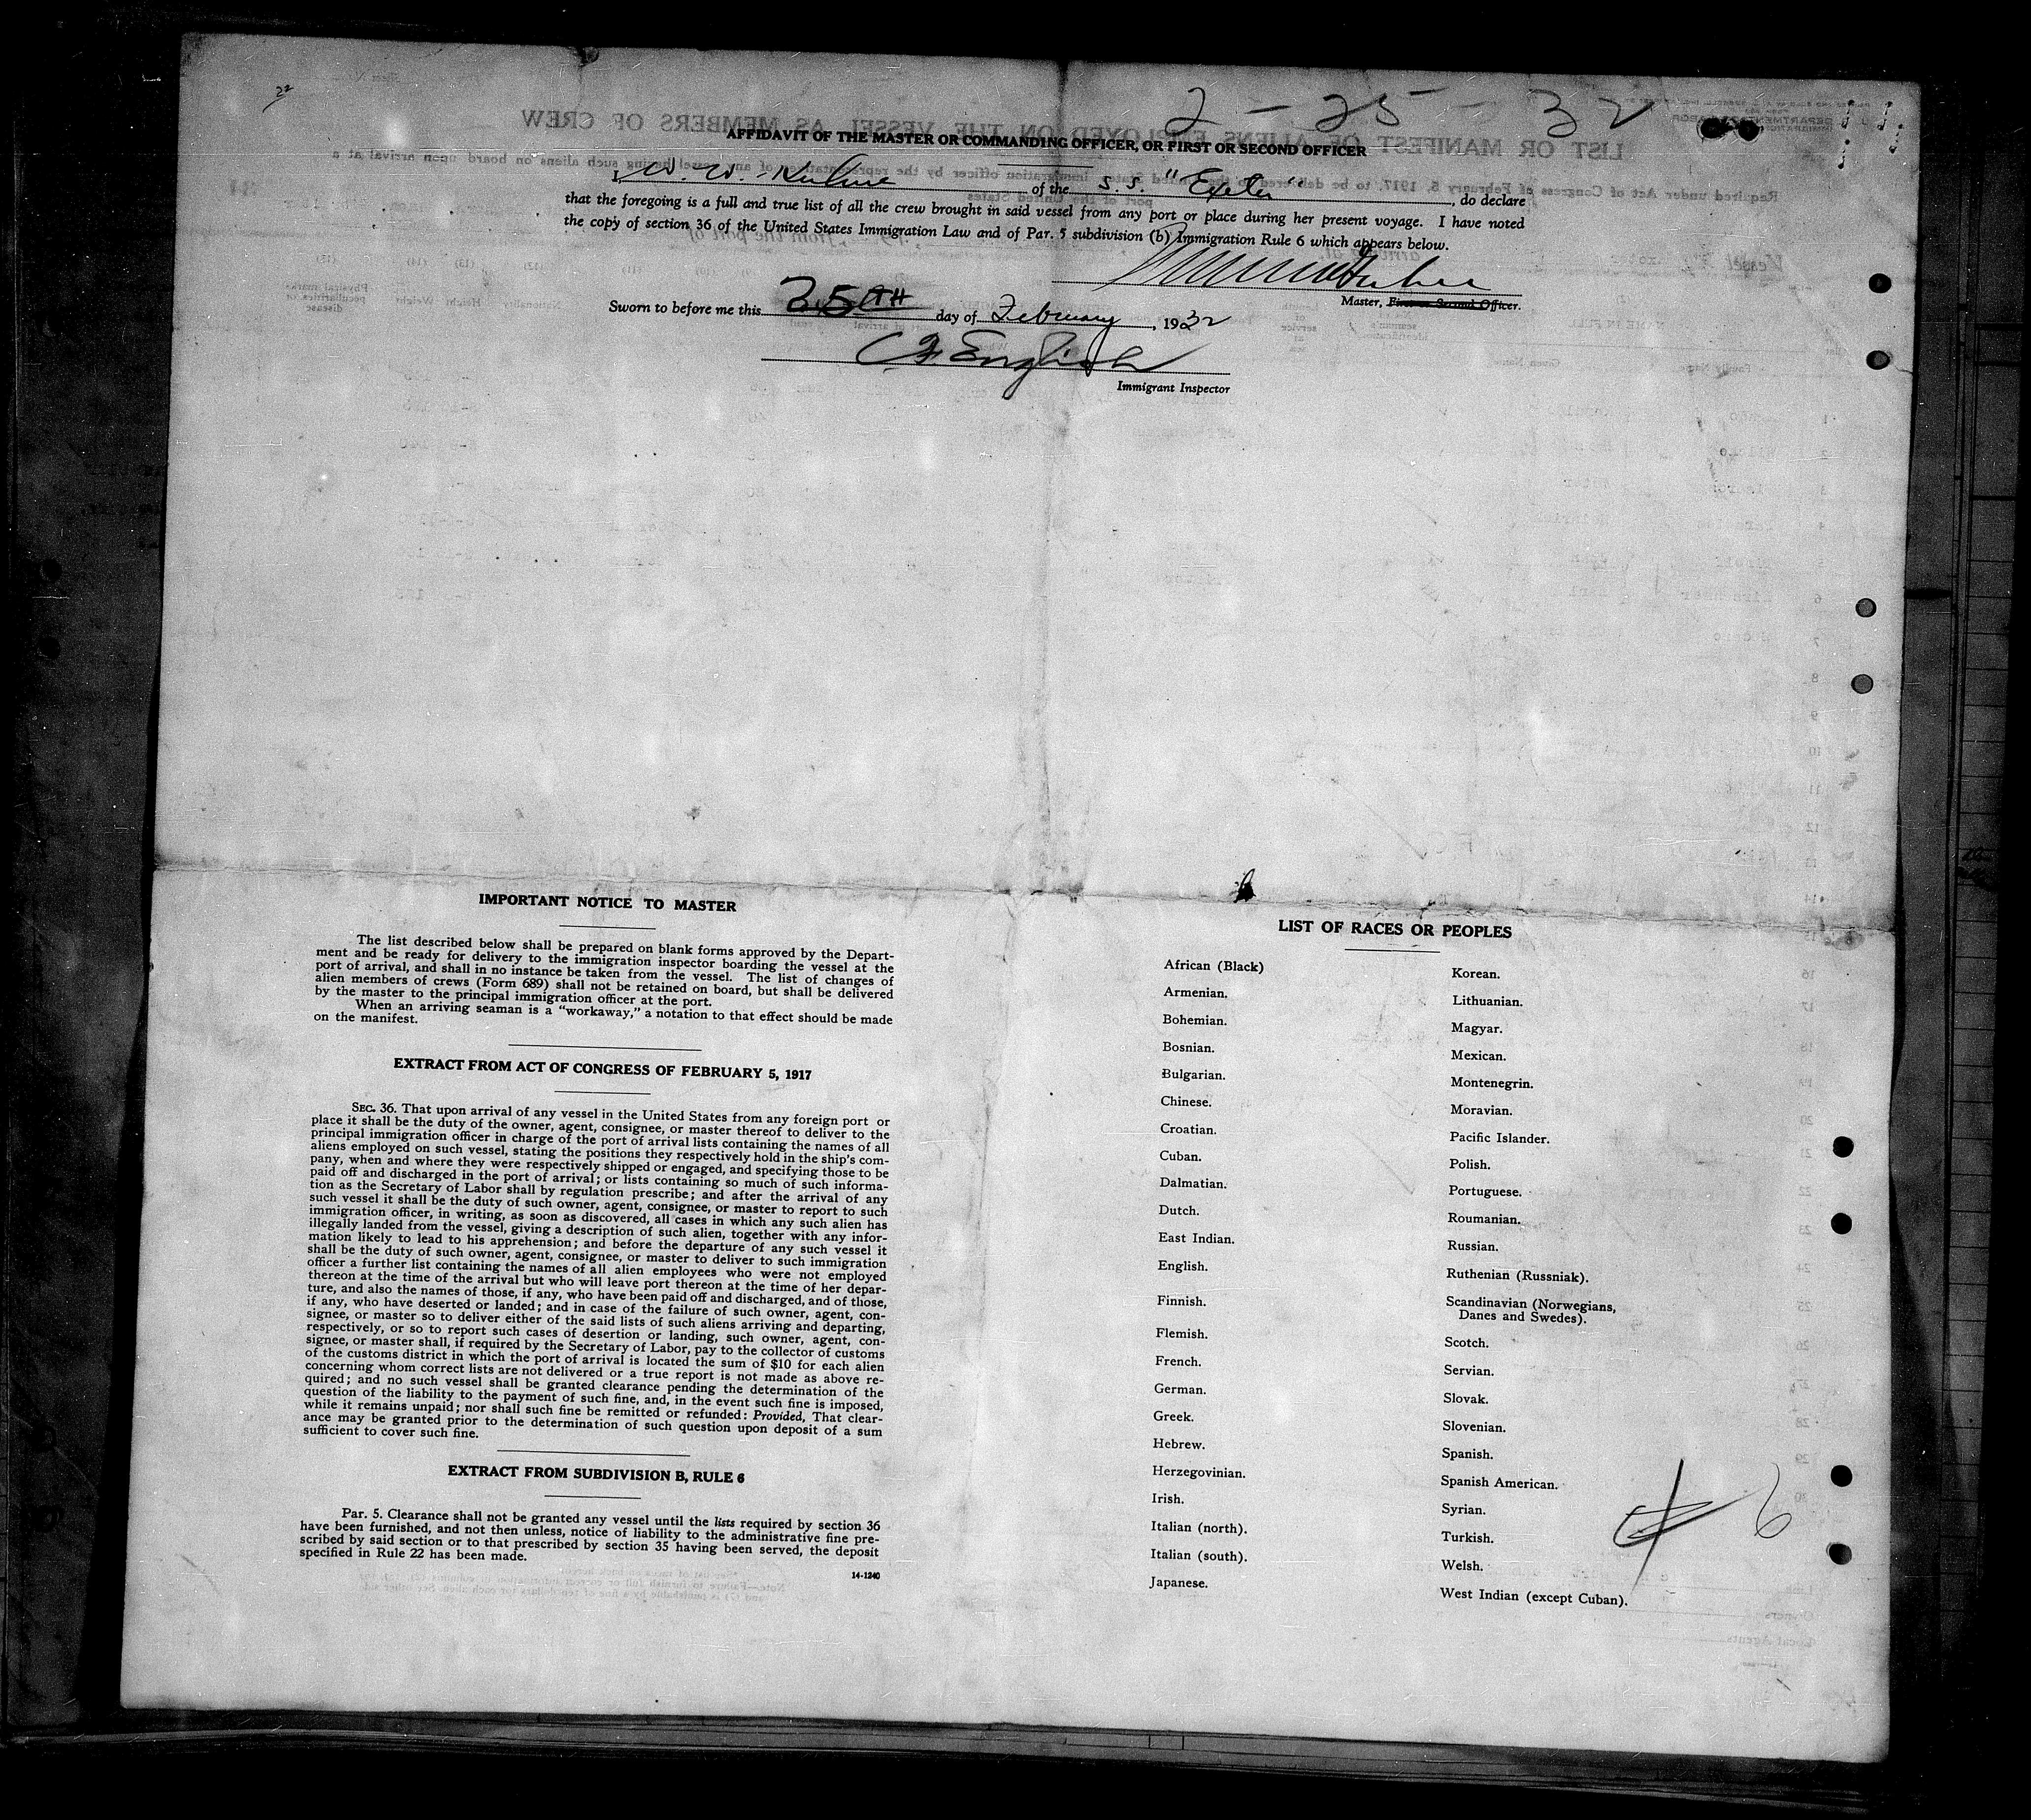 22
2 - 25 - 32
AFFIDAVIT OF THE MASTER OR COMMANDING OFFICER, OR FIRST OR SECOND OFFICER
I, W. W. Kuhne of the S. S. "Exeter", do declare
that the foregoing is a full and true list of all the crew brought in said vessel from any port or place during her present voyage. I have noted
the copy of section 36 of the United States Immigration Law and of Par. 5 subdivision (b) Immigration Rule 6 which appears below.
Master, First or Second Officer.
Sworn to before me this 25TH day of February, 1932
C F English
Immigrant Inspector
IMPORTANT NOTICE TO MASTER
The list described below shall be prepared on blank forms approved by the Depart-
ment and be ready for delivery to the immigration inspector boarding the vessel at the
port of arrival, and shall in no instance be taken from the vessel. The list of changes of
alien members of crews (Form 689) shall not be retained on board, but shall be delivered
by the master to the principal immigration officer at the port.
When an arriving seaman is a "workaway," a notation to that effect should be made
on the manifest.
EXTRACT FROM ACT OF CONGRESS OF FEBRUARY 5, 1917
SEC. 36. That upon arrival of any vessel in the United States from any foreign port or
place it shall be the duty of the owner, agent, consignee, or master thereof to deliver to the
principal immigration officer in charge of the port of arrival lists containing the names of all
aliens employed on such vessel, stating the positions they respectively hold in the ship's com-
pany, when and where they were respectively shipped or engaged, and specifying those to be
paid off and discharged in the port of arrival; or lists containing so much of such informa-
tion as the Secretary of Labor shall by regulation prescribe; and after the arrival of any
such vessel it shall be the duty of such owner, agent, consignee, or master to report to such
immigration officer, in writing, as soon as discovered, all cases in which any such alien has
illegally landed from the vessel, giving a description of such alien, together with any infor-
mation likely to lead to his apprehension; and before the departure of any such vessel it
shall be the duty of such owner, agent, consignee, or master to deliver to such immigration
officer a further list containing the names of all alien employees who were not employed
thereon at the time of the arrival but who will leave port thereon at the time of her depar-
ture, and also the names of those, if any, who have been paid off and discharged, and of those,
if any, who have deserted or landed; and in case of the failure of such owner, agent, con-
signee, or master so to deliver either of the said lists of such aliens arriving and departing,
respectively, or so to report such cases of desertion or landing, such owner, agent, con-
signee, or master shall, if required by the Secretary of Labor, pay to the collector of customs
of the customs district in which the port of arrival is located the sum of $10 for each alien
concerning whom correct lists are not delivered or a true report is not made as above re-
quired; and no such vessel shall be granted clearance pending the determination of the
question of the liability to the payment of such fine, and, in the event such fine is imposed,
while it remains unpaid; nor shall such fine be remitted or refunded: Provided, That clear-
ance may be granted prior to the determination of such question upon deposit of a sum
sufficient to cover such fine.
EXTRACT FROM SUBDIVISION B, RULE 6
Par. 5. Clearance shall not be granted any vessel until the lists required by section 36
have been furnished, and not then unless, notice of liability to the administrative fine pre-
scribed by said section or to that prescribed by section 35 having been served, the deposit
specified in Rule 22 has been made.
14-1240
LIST OF RACES OR PEOPLES
African (Black)
Armenian.
Bohemian.
Bosnian.
Bulgarian.
Chinese.
Croatian.
Cuban.
Dalmatian.
Dutch.
East Indian.
English.
Finnish.
Flemish.
French.
German.
Greek.
Hebrew.
Herzegovinian.
Irish.
Italian (north).
Italian (south).
Japanese.
Korean.
Lithuanian.
Magyar.
Mexican.
Montenegrin.
Moravian.
Pacific Islander.
Polish.
Portuguese.
Roumanian.
Russian.
Ruthenian (Russniak).
Scandinavian (Norwegians,
Danes and Swedes).
Scotch.
Servian.
Slovak.
Slovenian.
Spanish.
Spanish American.
Syrian.
Turkish.
Welsh.
West Indian (except Cuban).
6